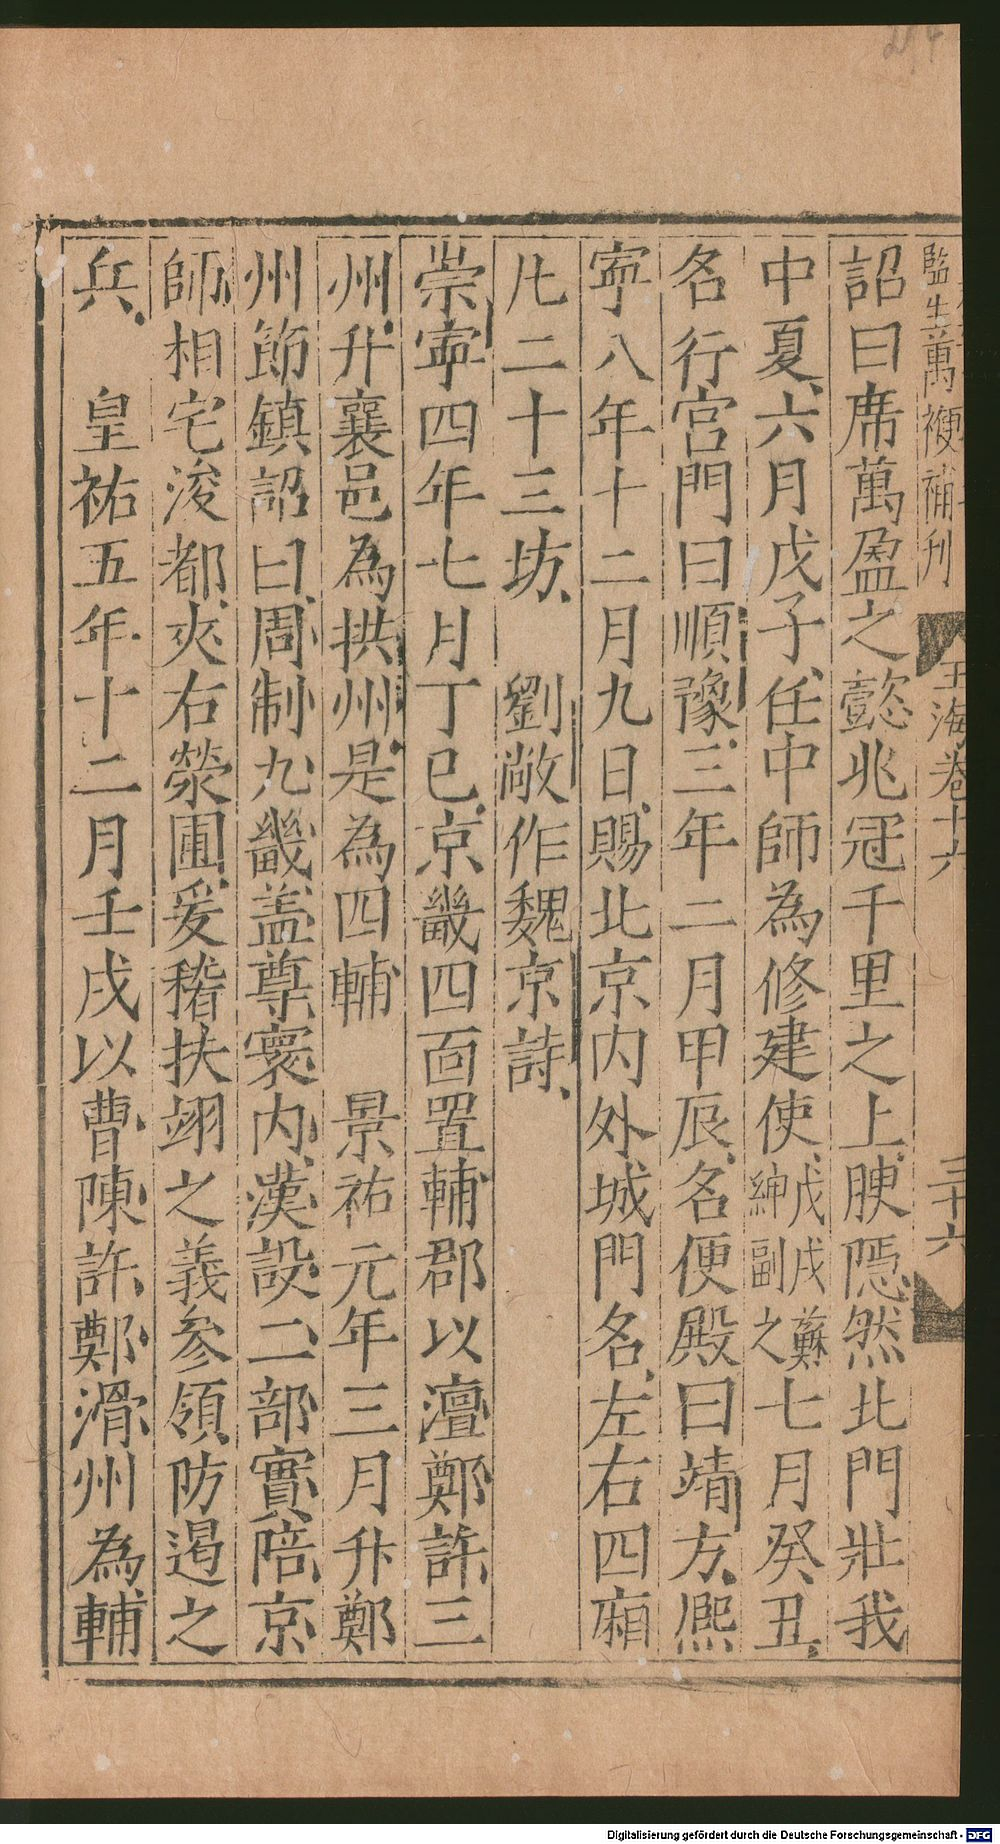 監生萬㮐補刊
玉海卷十六
三十六
詔曰席萬盈之懿兆冠千里之上腴隱然北門壯我
中夏六月戊子任中師為修建使戊戌蘇紳副之七月癸丑
名行宮門曰順豫三年二月甲辰名便殿曰靖方熈
寧八年十二月九日賜北京内外城門名左右四廂
凡二十三坊 劉敞作魏京詩
崇寧四年七月丁巳京畿四面置輔郡以澶鄭許三
州升襄邑為拱州是為四輔 景祐元年三月升鄭
州節鎮詔曰周制九畿盖尊寰内漢設二部實陪京
師相宅浚都夾右滎圃爰稽扶翊之義參領防遏之
兵 皇祐五年十二月壬戌以曹陳許鄭滑州為輔
Digitalisierung gefördert durch die Deutsche Forschungsgemeinschaft - DFG